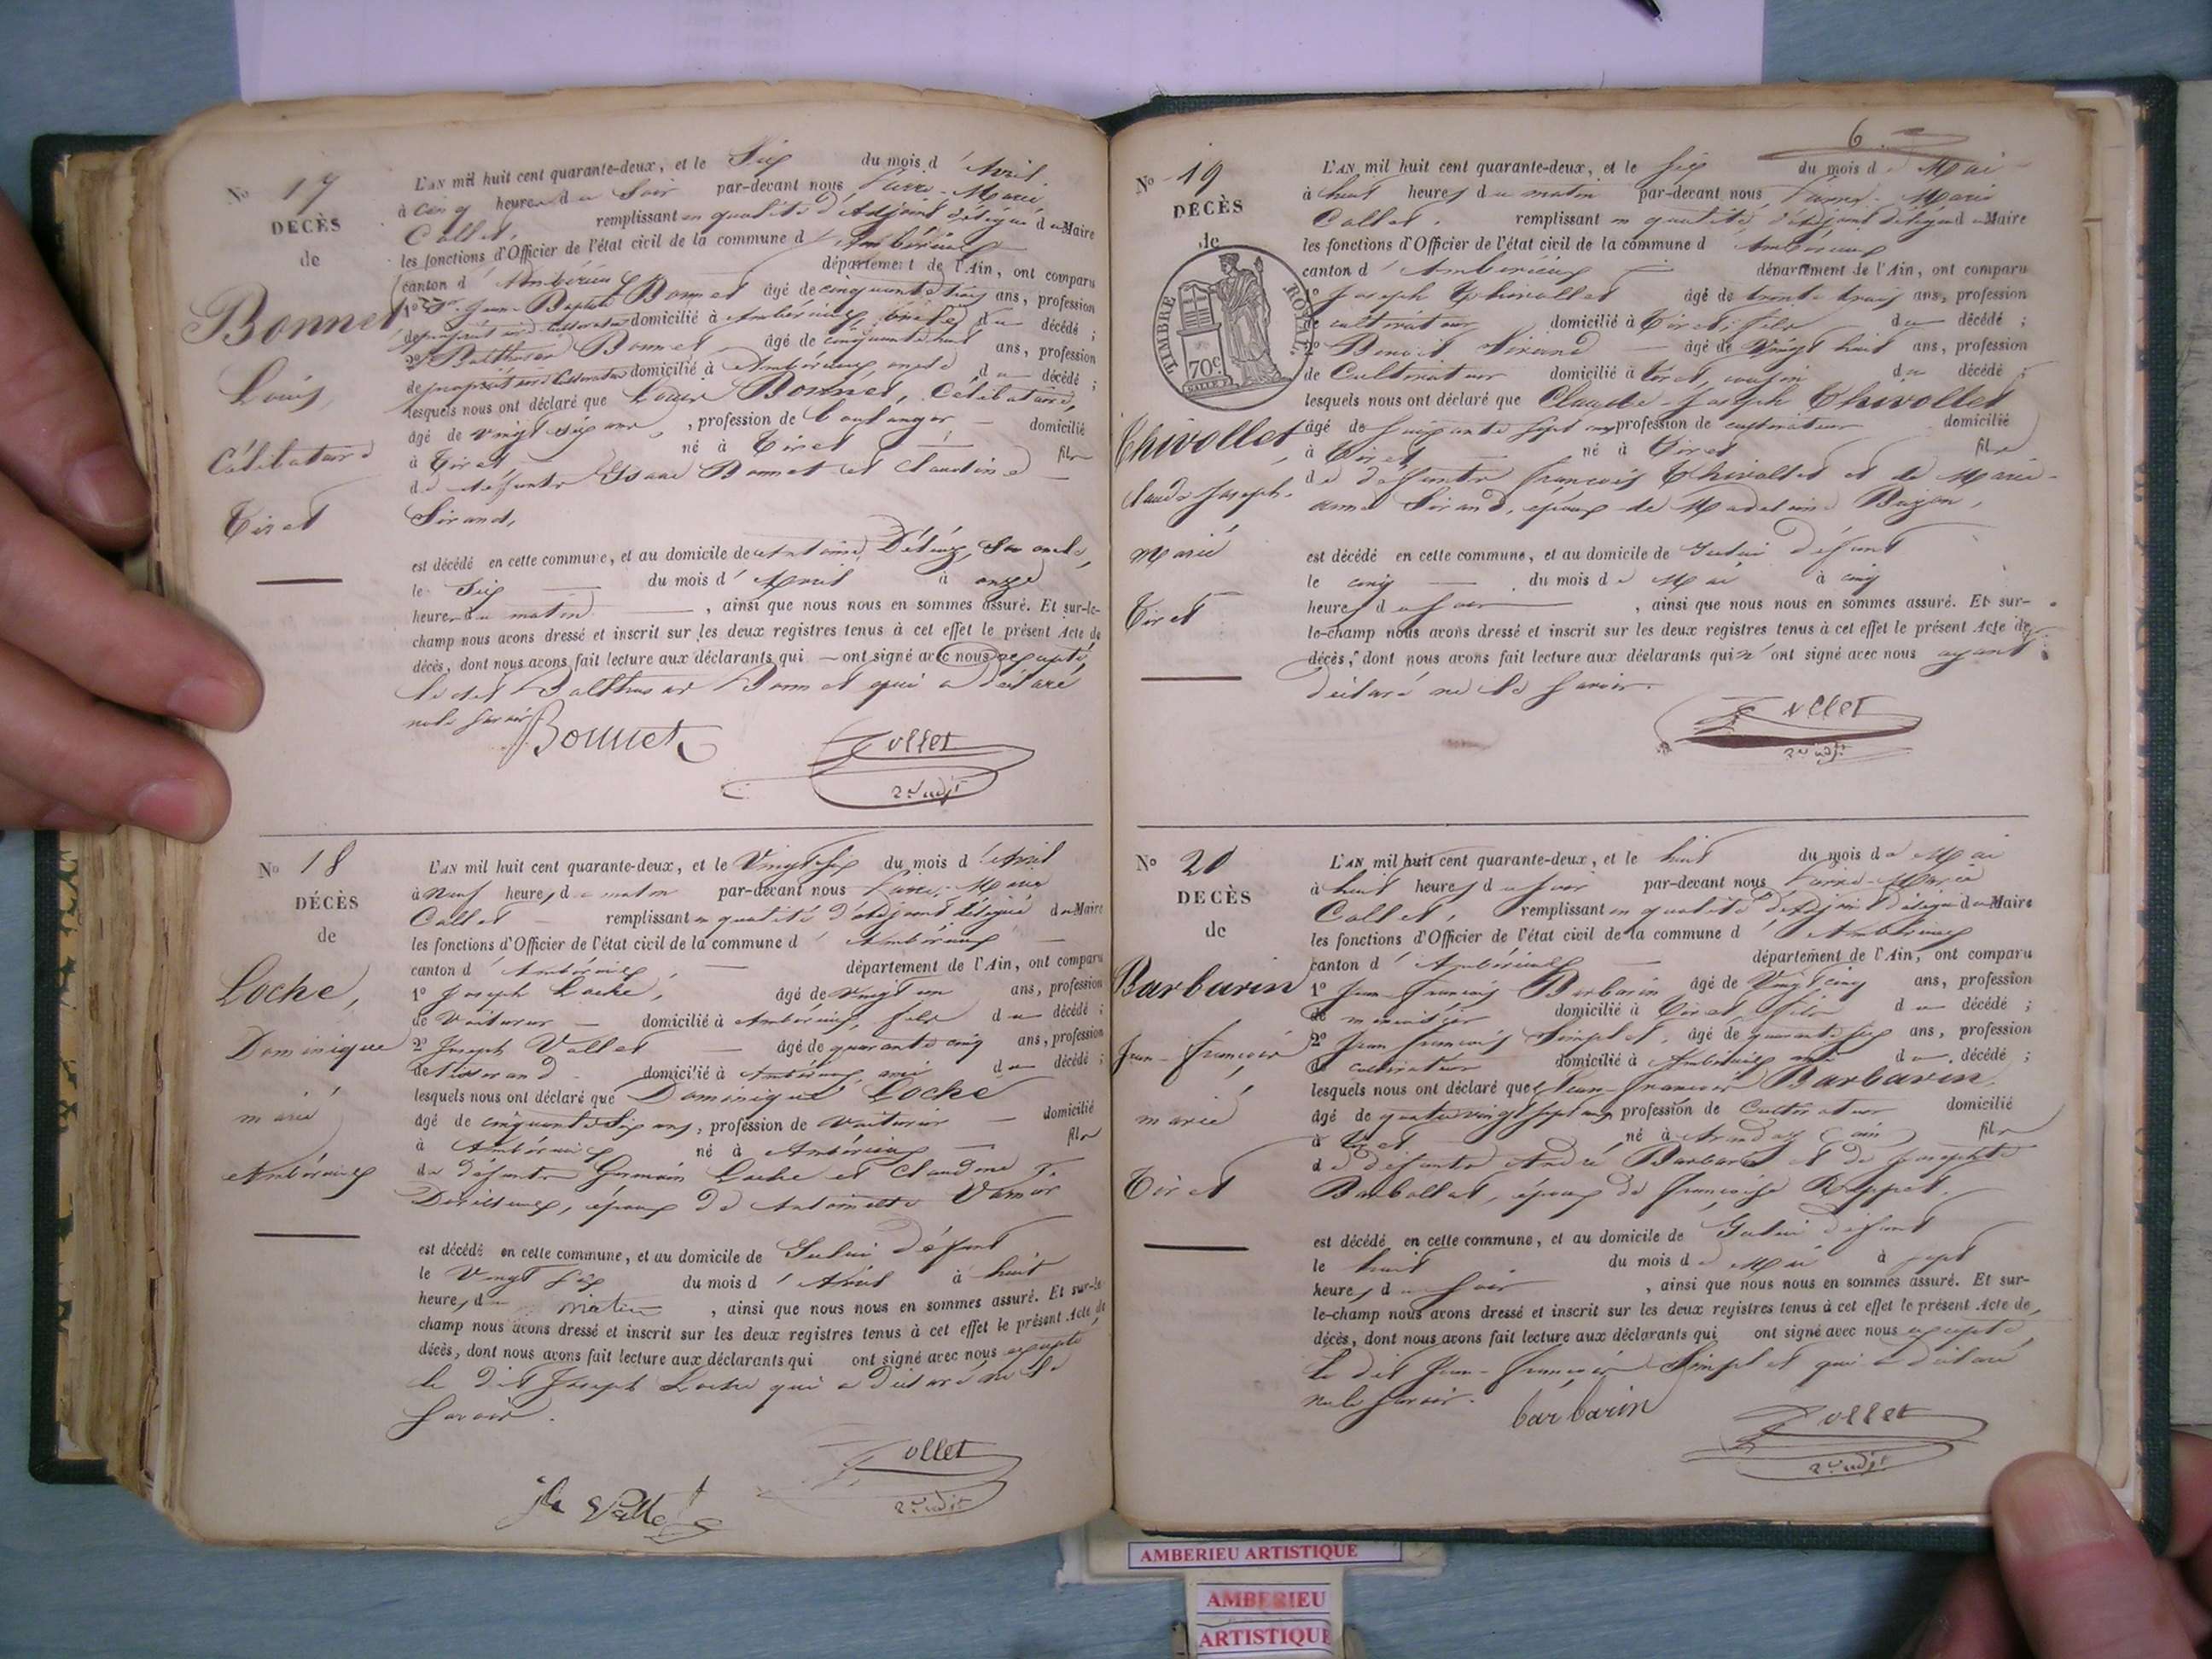 No 17
DÉCÈS
de
Bonnet
Louis
Célibataire
Tiret
L'AN mil huit cent quarante-deux, et le Six du mois d'Avril
à cinq heures du Soir par-devant nous Pierre-Marie
Collet, remplissant en qualité d'Adjoint délégué du Maire
les fonctions d'Officier de l'état civil de la commune d'Ambérieux
canton d'Ambérieux département de l'Ain, ont comparu
1º Sr. Jean-Baptiste Bonnet âgé de cinquante trois ans, profession
de propriétaire cultivateur domicilié à Ambérieux, oncle du décédé ;
2º Balthazar Bonnet âgé de cinquante huit ans, profession
de propriétaire cultivateur domicilié à Ambérieux, oncle du décédé ;
lesquels nous ont déclaré que Louis Bonnet, Célibataire,
âgé de vingt six ans, profession de boulanger domicilié
à Tiret né à Tiret fils
de défunts Bonnet et Claudine
Sirand,
est décédé en cette commune, et au domicile de Antoine son oncle,
le Six du mois d'Avril à onze
heures du matin, ainsi que nous nous en sommes assuré. Et sur-le-
champ nous avons dressé et inscrit sur les deux registres tenus à cet effet le présent Acte de
décès, dont nous avons fait lecture aux déclarants qui ont signé avec nous excepté
le dit Balthazar Bonnet qui a déclaré
ne le savoir
Bonnet
Collet
2e adjt
No 18
DÉCÈS
de
Loche,
Dominique
marié
Ambérieux
L'AN mil huit cent quarante-deux, et le Vingt Six du mois d'Avril
à Neuf heures du matin par-devant nous Pierre-Marie
Collet remplissant en qualité d'adjoint délégué du Maire
les fonctions d'Officier de l'état civil de la commune d'Ambérieux
canton d'Ambérieux, département de l'Ain, ont comparu
1º Joseph Loche, âgé de vingt un ans, profession
de Voiturier domicilié à Ambérieux, fils du décédé ;
2º Joseph Vallet âgé de quarante cinq ans, profession
de tisserand domicilié à Ambérieux, ami du décédé ;
lesquels nous ont déclaré que Dominique Loche
âgé de cinquante Six ans, profession de Voiturier domicilié
à Ambérieux né à Ambérieux fils
de défunts Germain Loche et Claudine
époux de Antoinette
est décédé en cette commune, et au domicile de Gelui défunt
le Vingt Six du mois d'Avril à huit
heures du matin, ainsi que nous nous en sommes assuré. Et sur-le-
champ nous avons dressé et inscrit sur les deux registres tenus à cet effet le présent Acte de
décès, dont nous avons fait lecture aux déclarants qui ont signé avec nous excepté
le dit Joseph Loche qui a déclaré ne le
savoir.
Collet
2e adjt
6
No 19
DÉCÈS
de
TIMBRE ROYAL.
70 c.
Chivollet
Claude Joseph.
Marié
Tiret
L'AN mil huit cent quarante-deux, et le six du mois de Mai
à huit heures du matin par-devant nous Pierre-Marie
Collet, remplissant en qualité d'adjoint délégué du Maire
les fonctions d'Officier de l'état civil de la commune d'Ambérieux
canton d'Ambérieux département de l'Ain, ont comparu
1º Joseph Chivollet âgé de trente trois ans, profession
de cultivateur domicilié à Tiret, fils du décédé ;
2º Benoit Sirand âgé de Vingt huit ans, profession
de Cultivateur domicilié à Tiret, cousin du décédé ;
lesquels nous ont déclaré que Claude-Joseph Chivollet
âgé de soixante sept ans profession de cultivateur domicilié
à Tiret né à Tiret fils
de défunts François Chivollet et de Marie-
anne Sirand, époux de Madelaine Bozon,
est décédé en cette commune, et au domicile de Gelui défunt
le cinq du mois de Mai à cinq
heures du soir, ainsi que nous nous en sommes assuré. Et sur-
le-champ nous avons dressé et inscrit sur les deux registres tenus à cet effet le présent Acte de
décès, dont nous avons fait lecture aux déclarants qui n'ont signé avec nous ayant
déclaré ne le savoir.
Collet
2e adjt
No 20
DÉCÈS
de
Barbarin
Jean-François
marié
Tiret
L'AN mil huit cent quarante-deux, et le huit du mois de Mai
à huit heures du soir par-devant nous Pierre-Marie
Collet, remplissant en qualité d'Adjoint délégué du Maire
les fonctions d'Officier de l'état civil de la commune d'Ambérieux
canton d'Ambérieux département de l'Ain, ont comparu
1º Jean-François Barbarin âgé de Vingt cinq ans, profession
de menuisier domicilié à Tiret, fils du décédé ;
2º Jean François Simplet, âgé de quarante six ans, profession
de cultivateur domicilié à Ambérieux ami du décédé ;
lesquels nous ont déclaré que Jean-François Barbarin,
âgé de quatre vingt sept ans profession de Cultivateur domicilié
à Tiret né à Arandas (ain) fils
de défunts André Barbarin et de Josephte
Barbollat, époux de Françoise
est décédé en cette commune, et au domicile de Gelui défunt
le huit du mois de Mai à sept
heures du soir, ainsi que nous nous en sommes assuré. Et sur-
le-champ nous avons dressé et inscrit sur les deux registres tenus à cet effet le présent Acte de
décès, dont nous avons fait lecture aux déclarants qui ont signé avec nous excepté
le dit Jean-François Simplet qui a déclaré
ne le savoir.
barbarin
Collet
2e adjt
AMBERIEU ARTISTIQUE
AMBERIEU
ARTISTIQUE